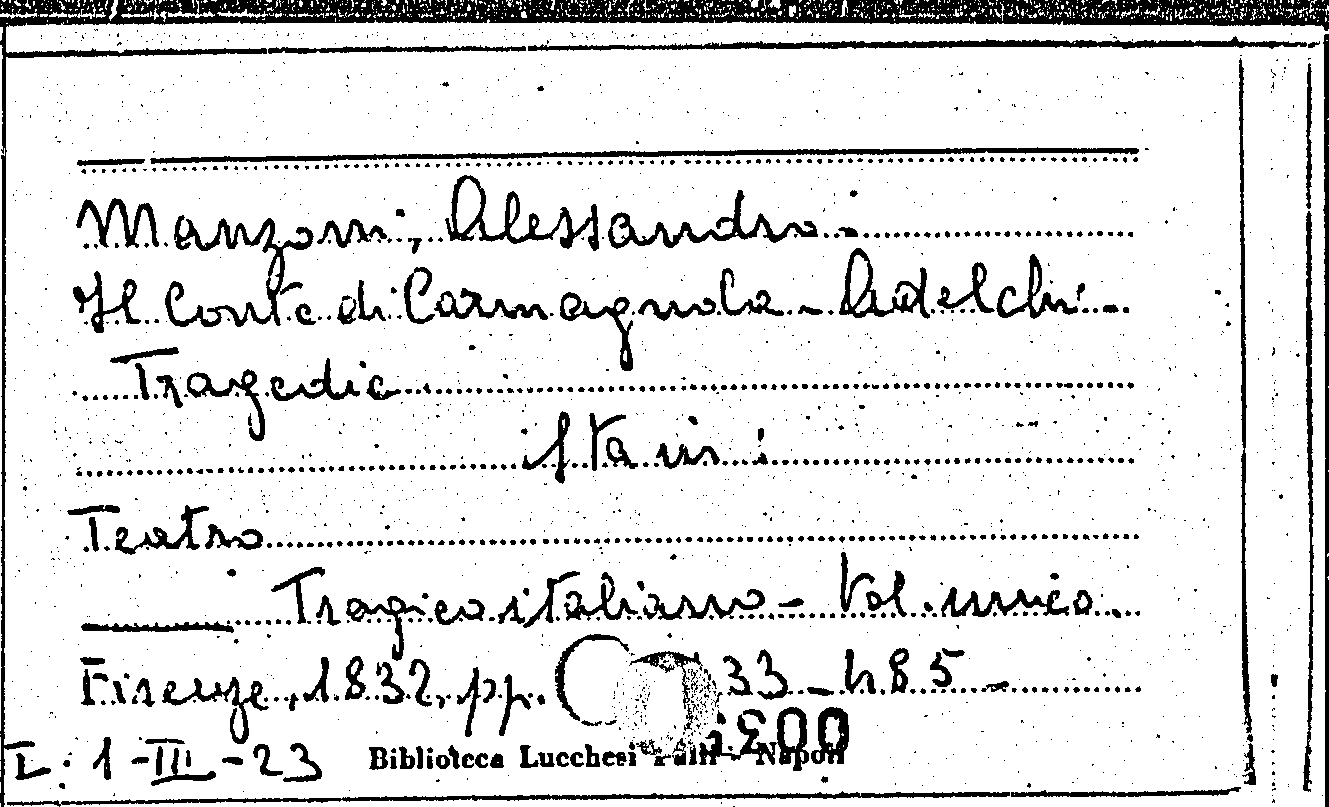 Manzoni, Alessandro.
Il Conte di Carmagnola - Adelchi -
Tragedie
sta in:
Teatro
Tragico italiano - Vol. unico.
Firenze, 1832, pp. 33-485 -
L. 1-III-23 Biblioteca Lucchesi Palli - Napoli